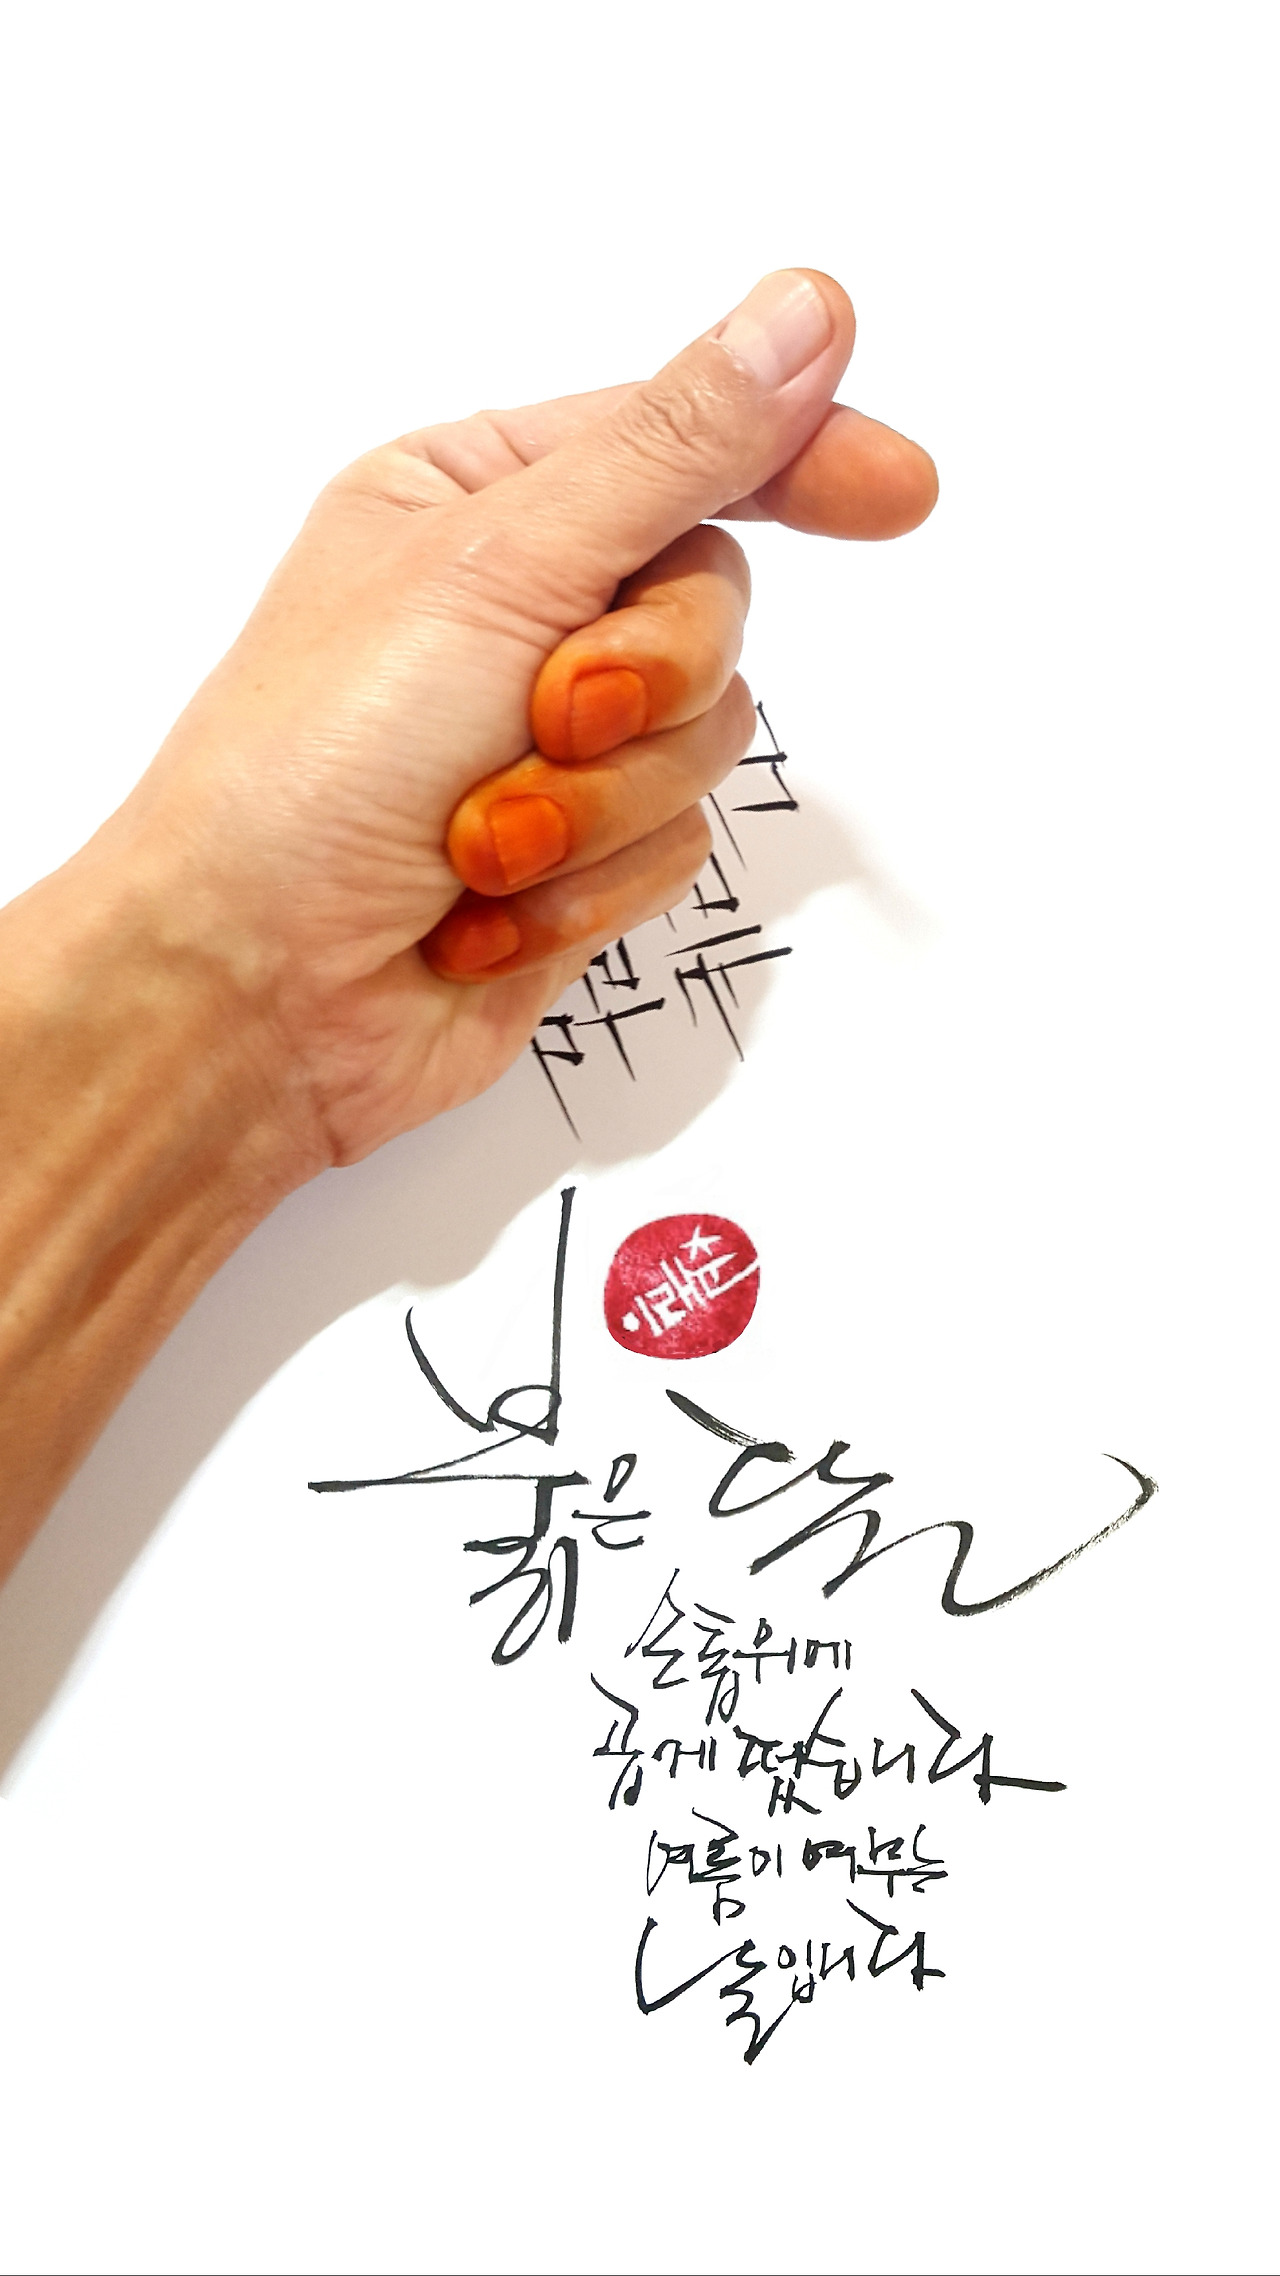 이래춘
붉은 달
손톱위에
곱게 떴습니다
여름이 여무는
날입니다